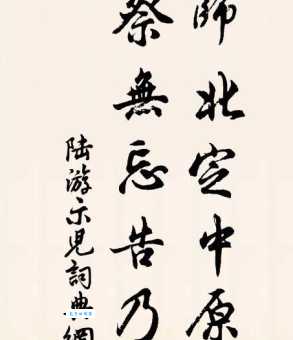 師北定中原
祭無忘告乃
陸游示兒詞典網